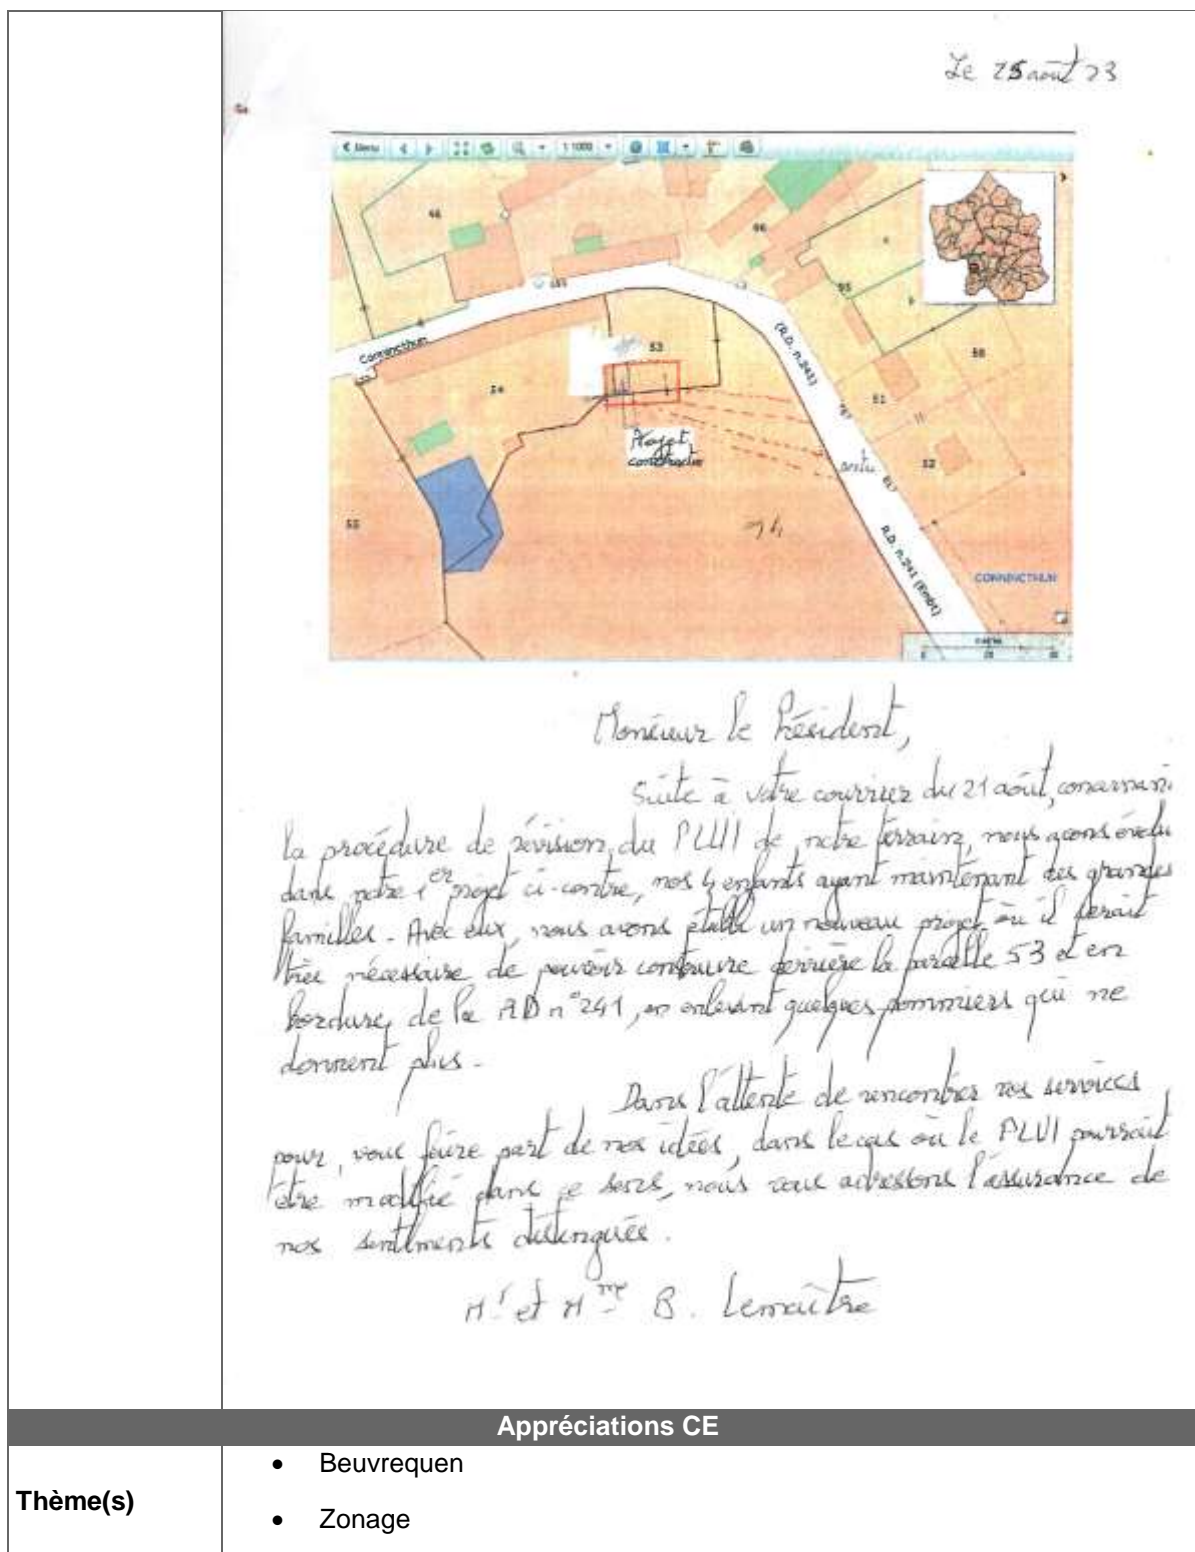 Le 25 août 23
Menu 1:1000
46
66
165
Connincthun
53
54
55
(R.D. n.241)
50
51
52
Projet
construction
74
R.D. n.241 (Embt)
CONNINCTHUN
Monsieur le Président,
Suite à votre courrier du 21 août, concernant
la procédure de révision du PLUI de notre terrain, nous avons évolué
dans notre 1er projet ci-contre, nos 4 enfants ayant maintenant des grandes
familles - Avec eux, nous avons établi un nouveau projet où il serait
très nécessaire de pouvoir construire derrière la parcelle 53 et en
bordure de la RD n°241, en enlevant quelques pommiers qui ne
donnent plus -
Dans l'attente de rencontrer vos services
pour vous faire part de nos idées, dans le cas où le PLUI pourrait
être modifié dans ce sens, nous vous adressons l'assurance de
nos sentiments distingués.
Mr et Mme B. Lemaître
Appréciations CE
Thème(s)
• Beuvrequen
• Zonage